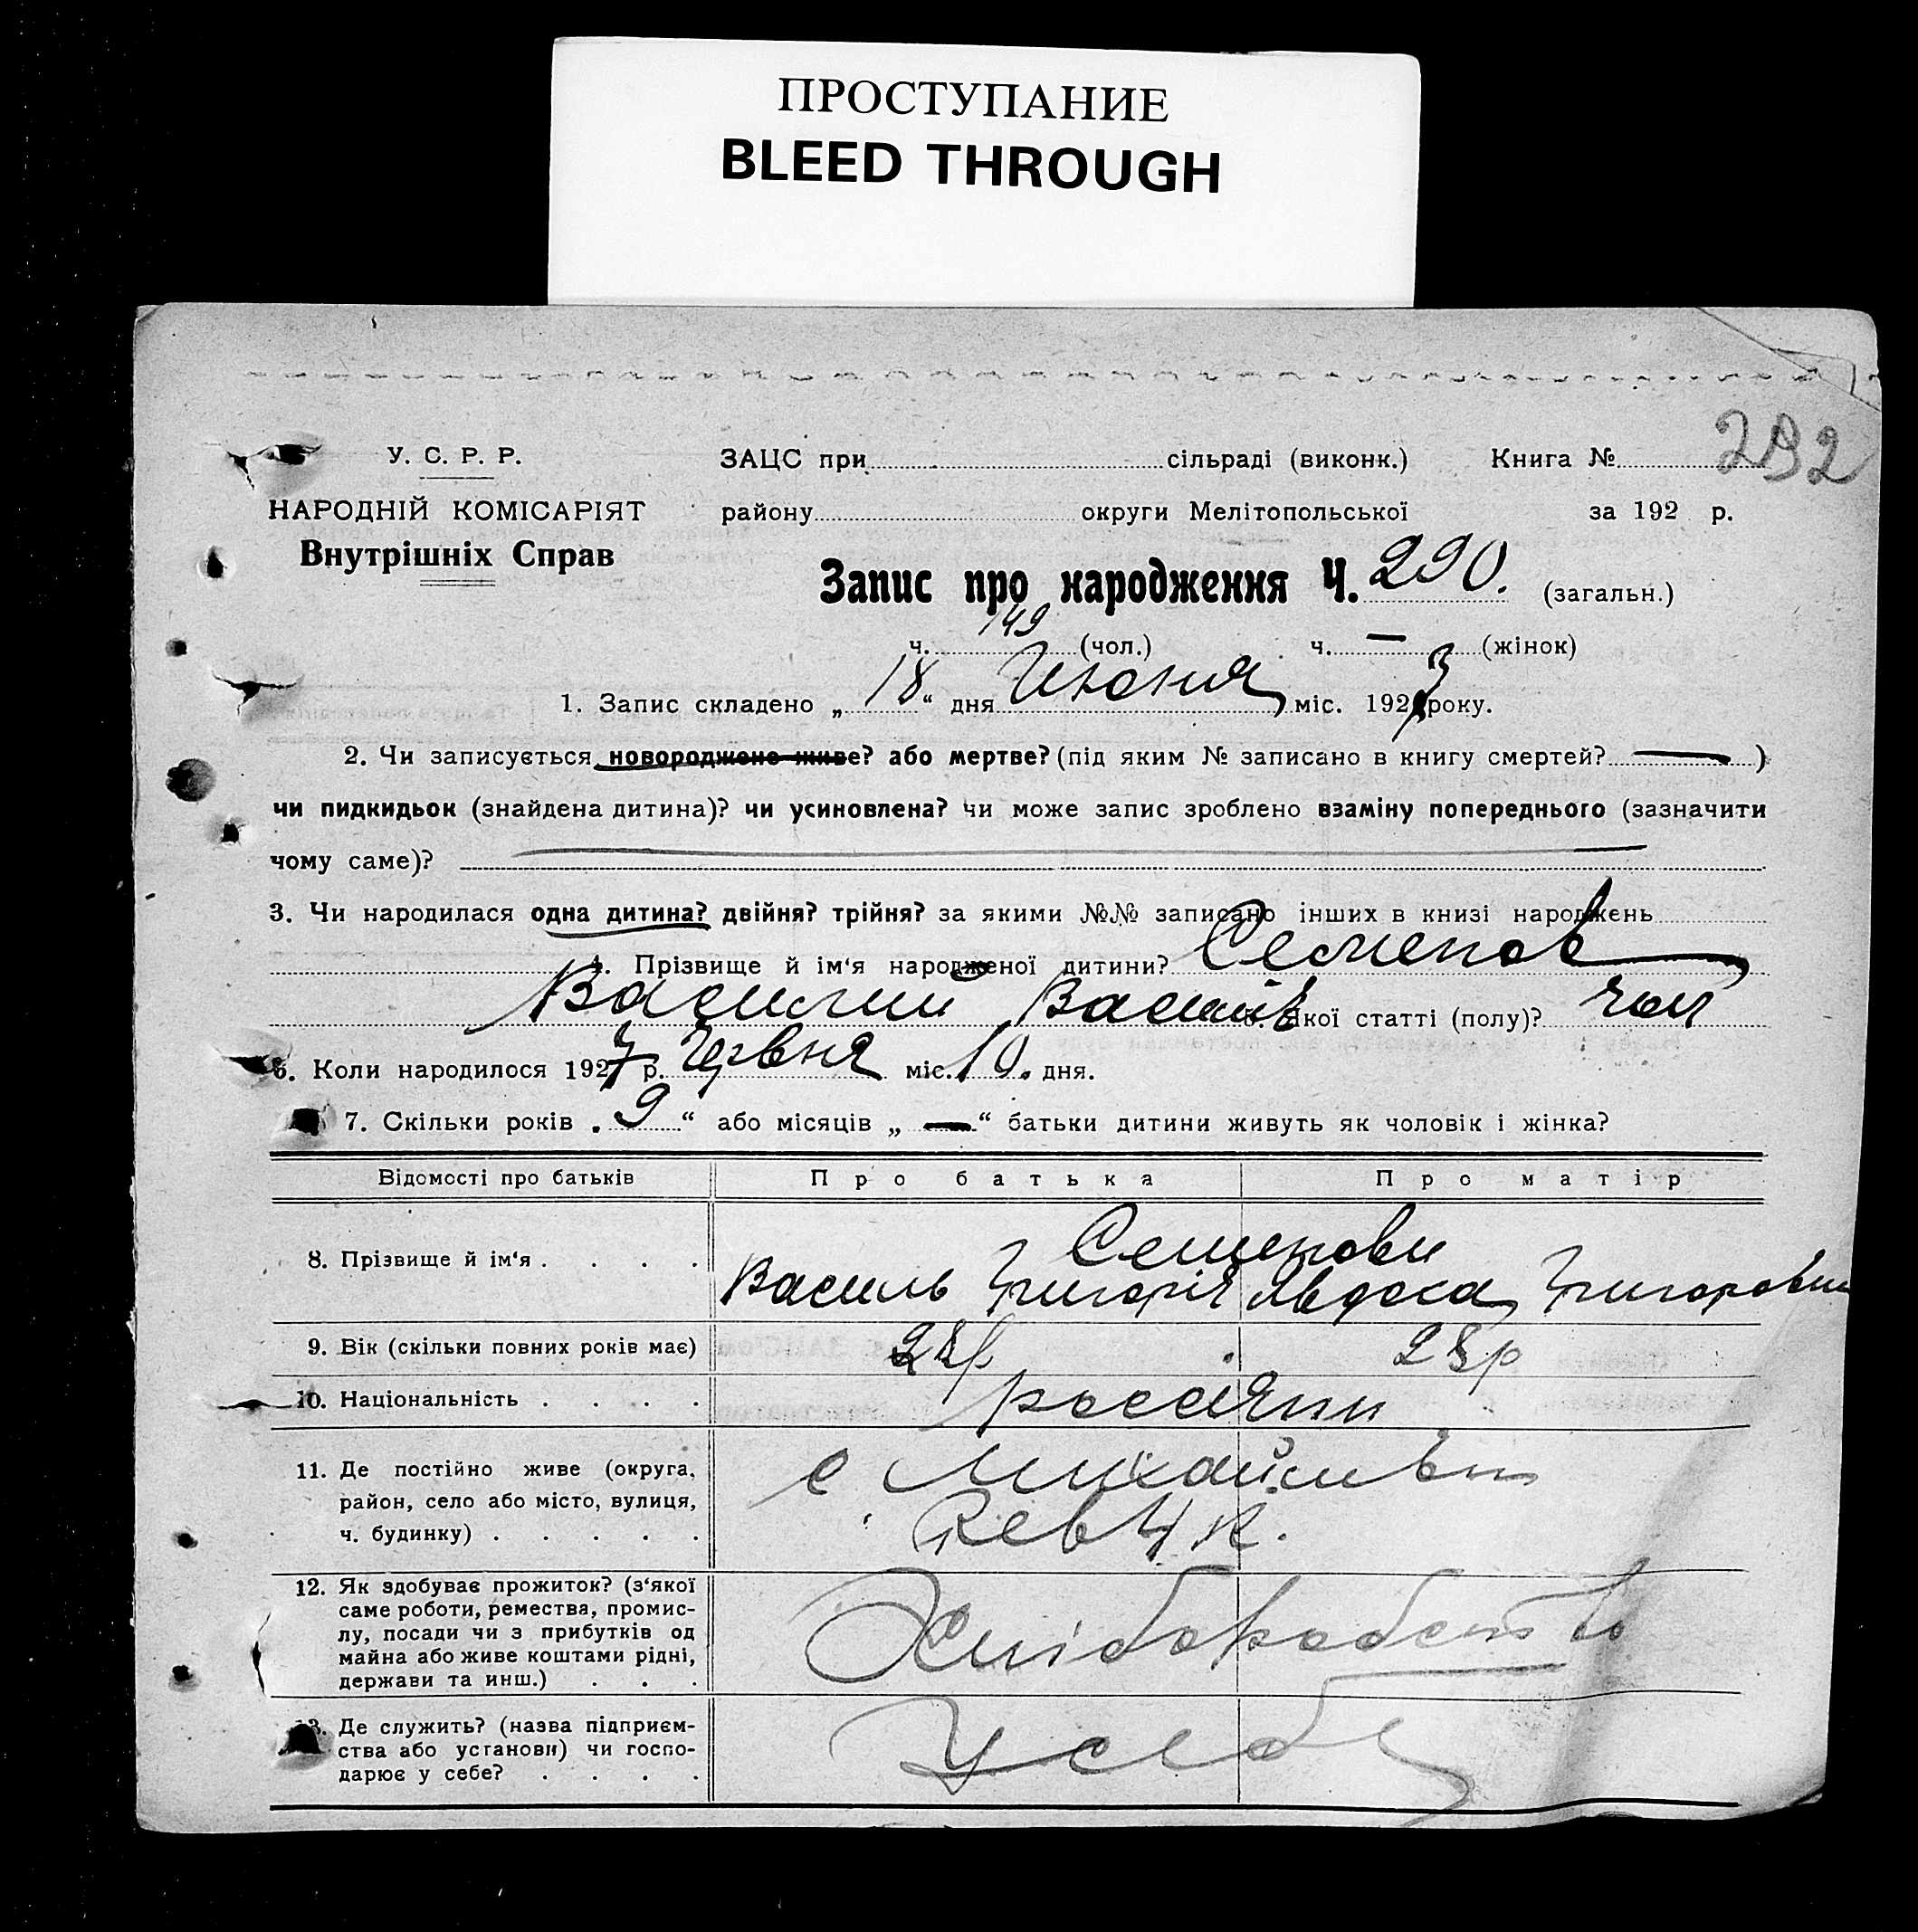 ПРОСТУПАНИЕ
BLEED THROUGH
У. С. Р. Р.
ЗАЦС при сільраді (виконк.) Книга №
НАРОДНІЙ КОМІСАРІЯТ
району округи Мелітопольської за 192 р.
Внутрішніх Справ
Запис про народження Ч. 290. (загальн.)
ч. 149 (чол.) ч. — (жінок)
1. Запис складено „ 18 “ дня Июня міс. 1927 року.
2. Чи записується новороджене живе? або мертве? (під яким № записано в книгу смертей? — )
чи пидкидьок (знайдена дитина)? чи усиновлена? чи може запис зроблено взаміну попереднього (зазначити
чому саме)?
3. Чи народилася одна дитина? двійня? трійня? за якими №№ записано інших в книзі народжень
4. Прізвище й ім‘я народженої дитини? Семенов
Василий Васил. 5. Якої статті (полу)? чол
6. Коли народилося 1927 р. Червня міс. 10. дня.
7. Скільки років „ 9 “ або місяців „ — “ батьки дитини живуть як чоловік і жінка?
Відомості про батьків Про батька Про матір
8. Прізвище й ім‘я . . . . Семенови
Василь Григорів Явдоха Григоровна
9. Вік (скільки повних років має) 28р 28р
10. Національність . . . . россіяни
11. Де постійно живе (округа, район, село або місто, вулиця, ч. будинку) . . . . . с Михайлівки
12. Як здобуває прожиток? (з‘якої саме роботи, ремества, промислу, посади чи з прибутків од майна або живе коштами рідні, держави та инш.) . . . Хліборобство
13. Де служить? (назва підприємства або установи) чи господарює у себе? . . . . У себе